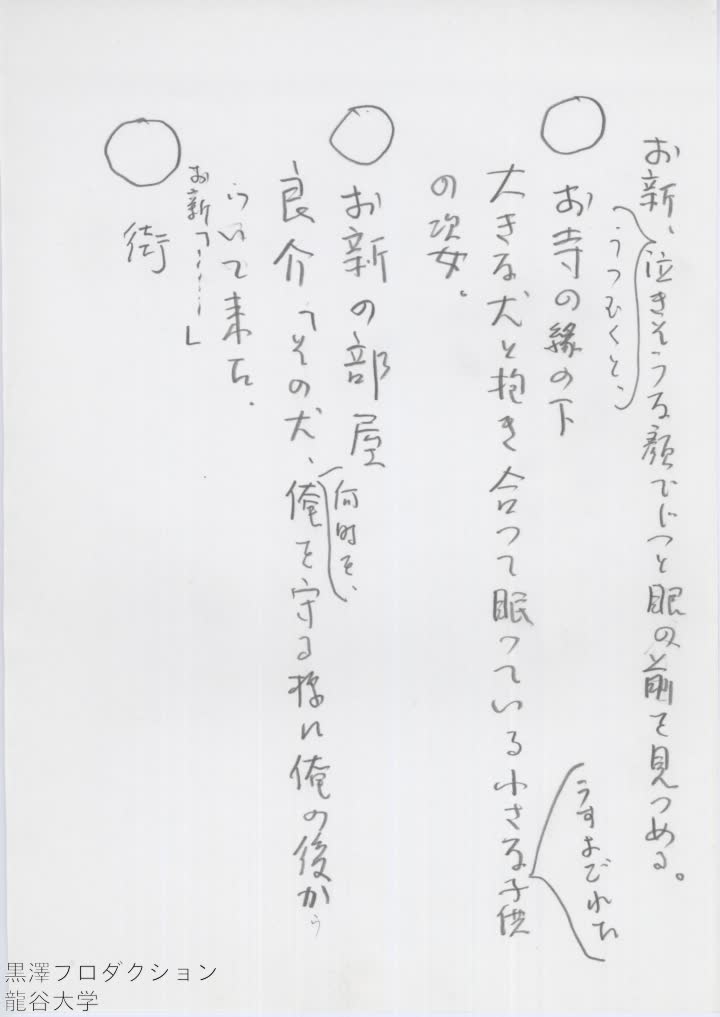 お新、泣きそうな顔でじつと眼の前を見つめる。
うつむくと、
○お寺の縁の下
大きな犬と抱き合つて眠つている小さな子供
うすよごれた
の次女。
○お新の部屋
良介「その犬、俺を守る様に俺の後か
何時も、
らついて来た。
お新「……」
○街
黒澤プロダクション
龍谷大学